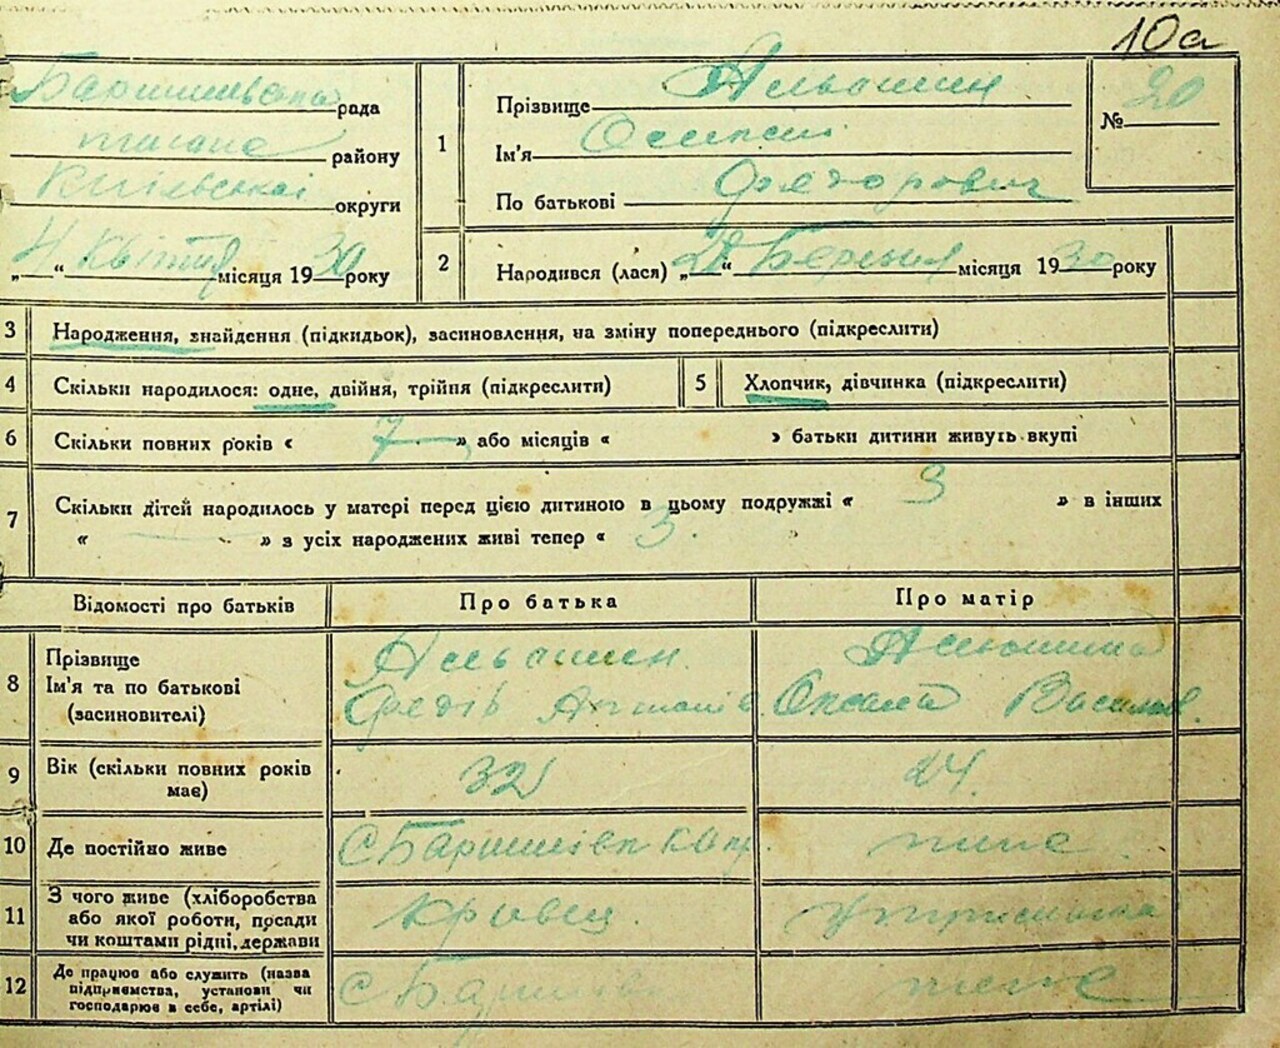 10а
Баришівська рада
району
Київської округи
„4“ Квітня місяця 1930 року
1
Прізвище Альошин
Ім'я
По батькові Федорович
№ 20
2
Народився (лася) „28“ Березня місяця 1930 року
3 Народження, знайдення (підкидьок), засиновлення, на зміну попереднього (підкреслити)
4 Скільки народилося: одне, двійня, трійня (підкреслити)
5 Хлопчик, дівчинка (підкреслити)
6 Скільки повних років « 7 » або місяців « » батьки дитини живуть вкупі
7 Скільки дітей народилось у матері перед цією дитиною в цьому подружжі « 3 » в інших
« — » з усіх народжених живі тепер « 3.
Відомості про батьків Про батька Про матір
8 Прізвище
Ім'я та по батькові
(засиновителі)
Альошин
Федір
Альошина
Оксана Василів.
9 Вік (скільки повних років
має)
32
24.
10 Де постійно живе
С Баришівка
11 З чого живе (хліборобства
або якої роботи, посади
чи коштами рідні, держави
Кравец
Утриманка
12 Де працює або служить (назва
підприємства, установи чи
господарює в себе, артілі)
С Баришівка